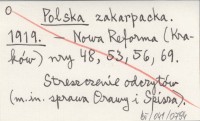 O
Polska zakarpacka.
1919. – Nowa Reforma (Kra-
ków) nry 48, 53, 56, 69.
Streszczenie odczytów
(m.in. sprawa Orawy i Spisza).